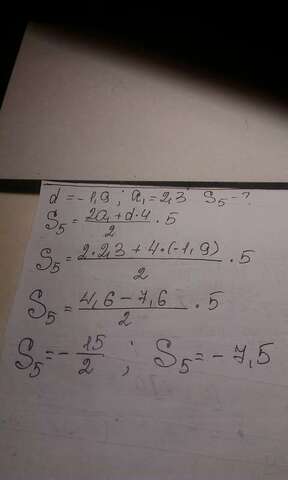 d = -1,9 ; a₁ = 2,3 S₅ - ?
S₅ = \frac{2a₁ + d·4}{2} · 5
S₅ = \frac{2·2,3 + 4·(-1,9)}{2} · 5
S₅ = \frac{4,6 - 7,6}{2} · 5
S₅ = -\frac{15}{2} ; S₅ = -7,5